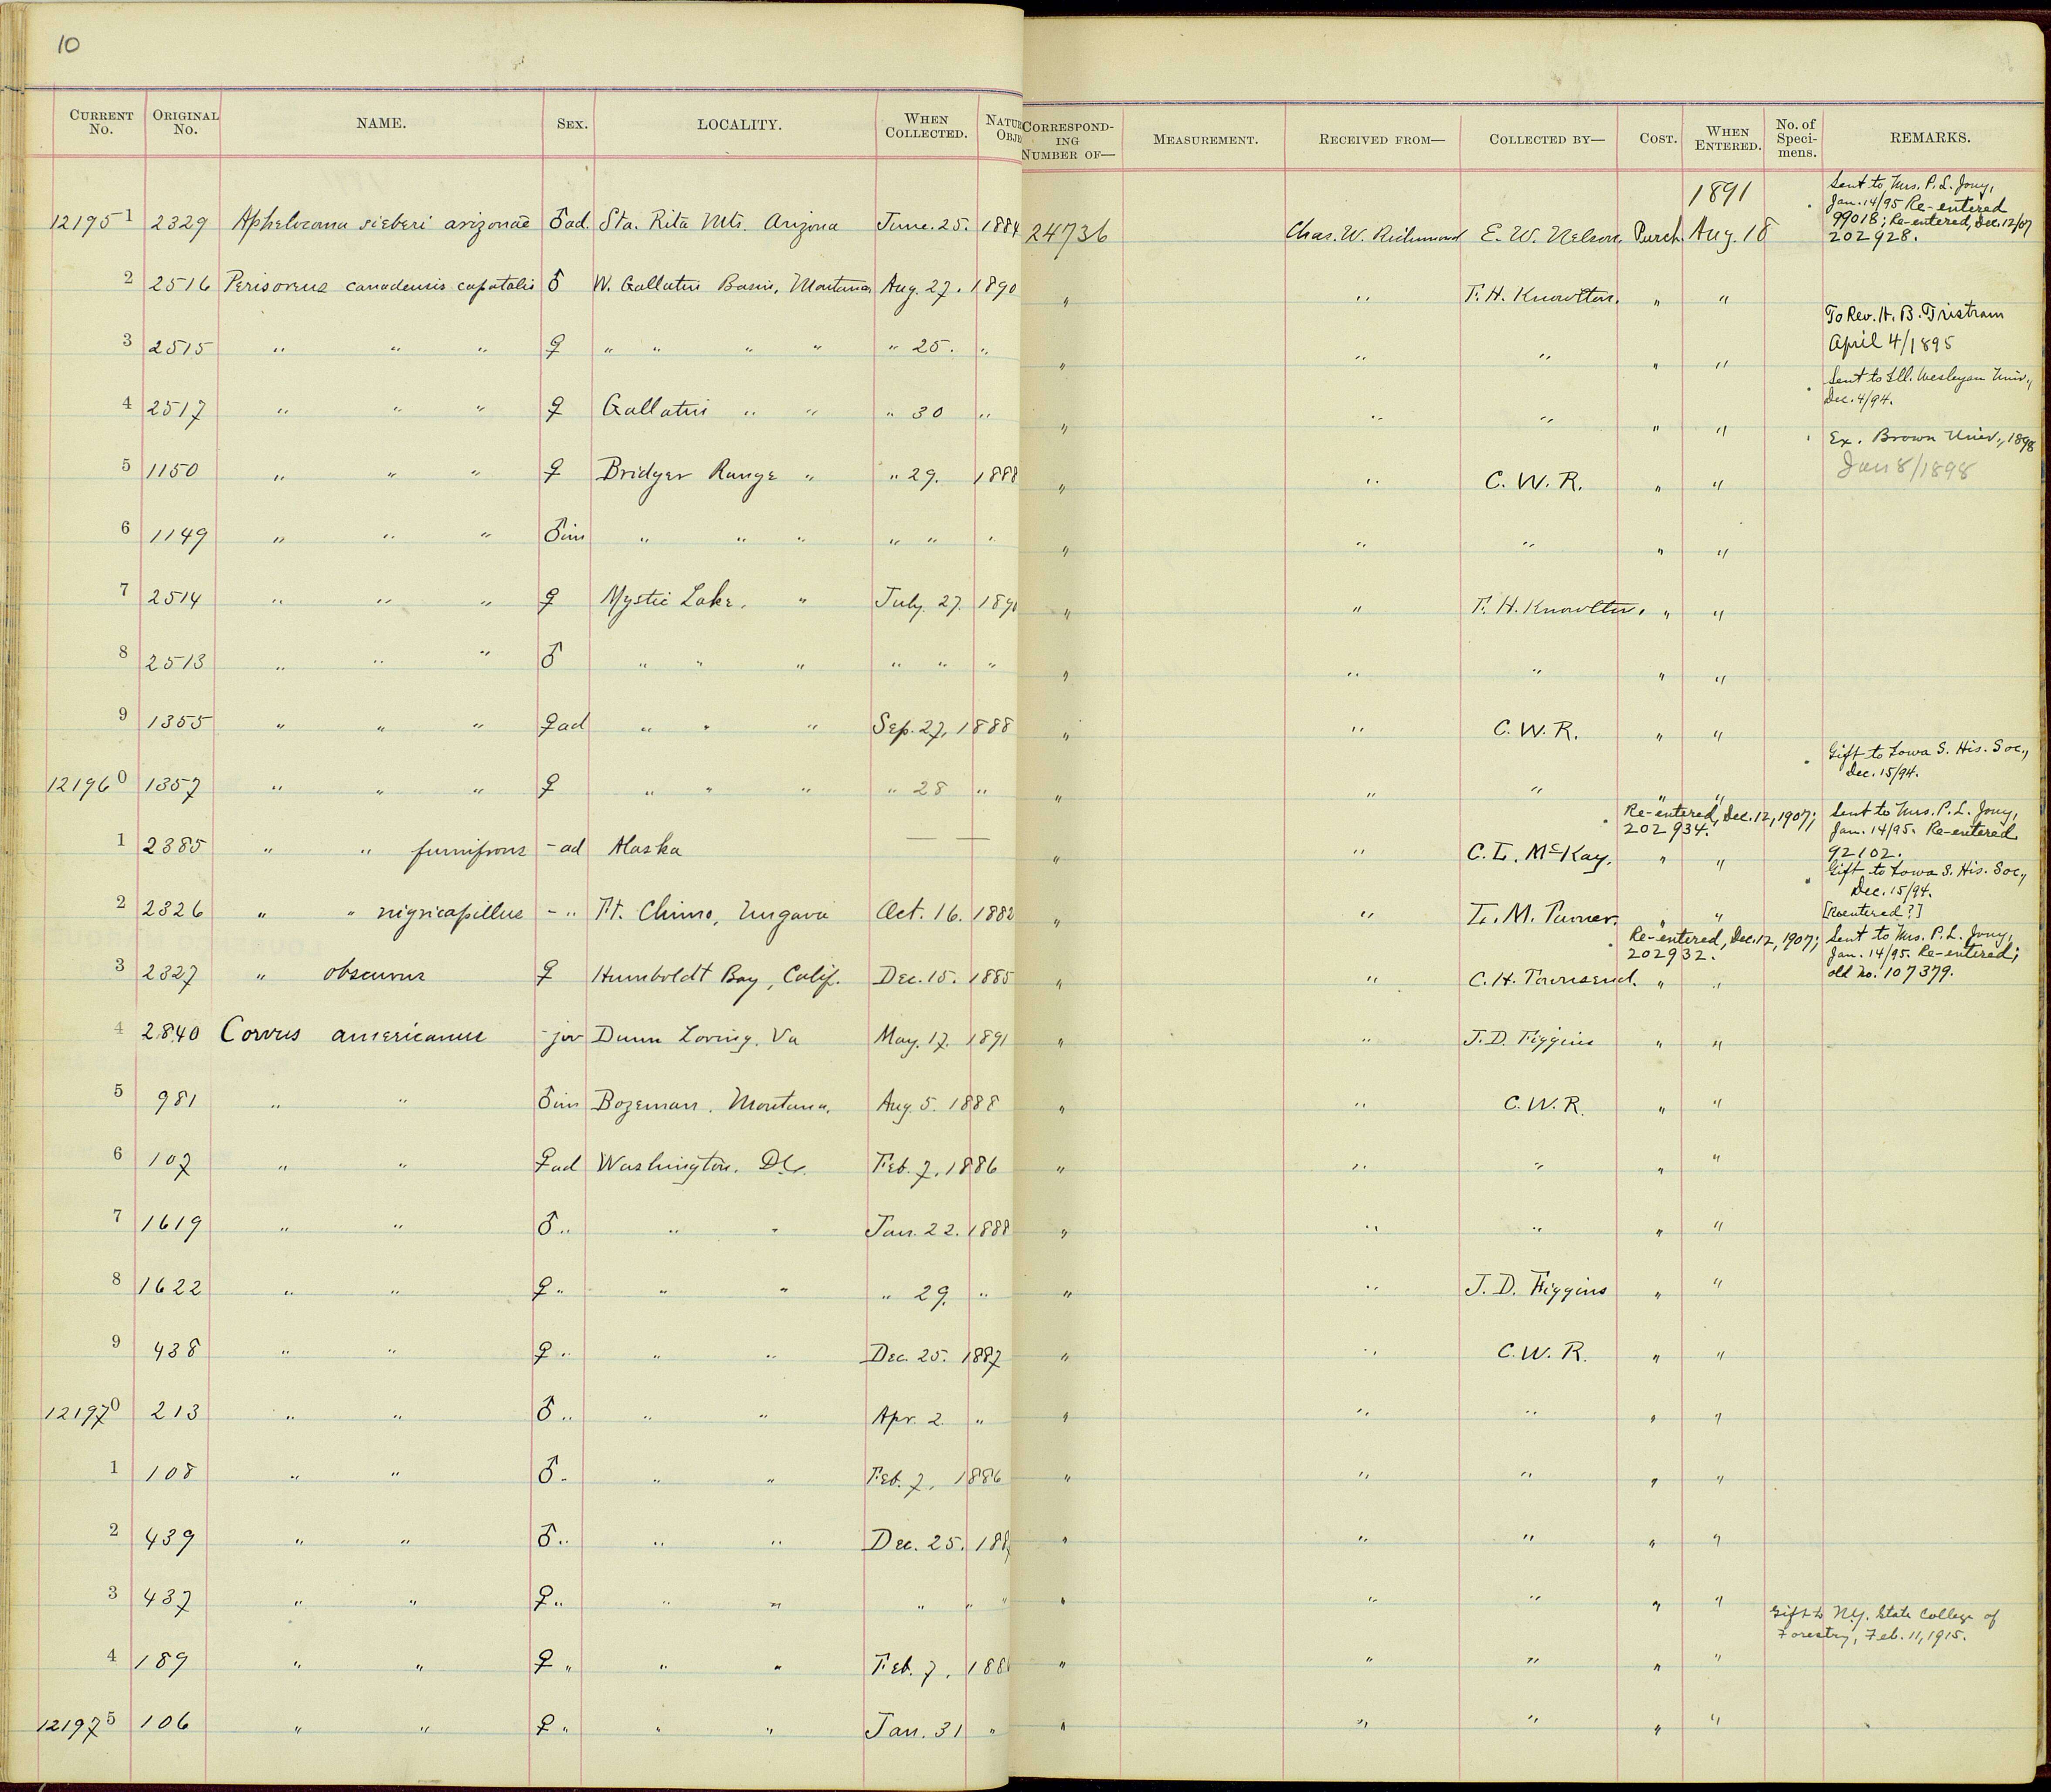 10
CURRENT No. ORIGINAL No. NAME. SEX. LOCALITY. WHEN COLLECTED. NATU OBJ CORRESPONDING NUMBER OF— MEASUREMENT. RECEIVED FROM— COLLECTED BY— COST. WHEN ENTERED. No. of Specimens. REMARKS.
1891
Sent to Mrs. P. L. Jouy,
Jan. 14/95 Re-entered
99018; Re-entered, Dec. 12/07
202928.
121951 2329 Aphelocoma sieberi arizonae ♂ad. Sta. Rita Mts. Arizona June. 25. 1884 24736 Chas. W. Richmond E. W. Nelson. Purch. Aug. 18
2 2516 Perisoreus canadensis capitalis ♂ W. Gallatin Basin, Montana Aug. 27. 1890 " " F. H. Knowlton. " "
To Rev. H. B. Tristram
April 4/1895
3 2515 " " " ♀ " " " " " 25. " " " " " "
Sent to Ill. Wesleyan Univ.,
Dec. 4/94.
4 2517 " " " ♀ Gallatin " " " 30 " " " " " "
Ex. Brown Univ., 1898
Jan 8/1898
5 1150 " " " ♀ Bridger Range " " 29. 1888 " " C. W. R. " "
6 1149 " " " ♂im " " " " " " " " " " "
7 2514 " " " ♀ Mystic Lake. " July. 27. 1890 " " F. H. Knowlton. " "
8 2513 " " " ♂ " " " " " " " " " " "
9 1355 " " " ♀ad " " " Sep. 27, 1888 " " C. W. R. " "
Gift to Iowa S. His. Soc.,
Dec. 15/94.
121960 1357 " " " ♀ " " " " 28 " " " " " "
Re-entered, Dec. 12, 1907; 202934.
Sent to Mrs. P. L. Jouy,
Jan. 14/95. Re-entered
92102.
1 2385 " " fumifrons - ad Alaska — — " " C. L. McKay. " "
Gift to Iowa S. His. Soc.,
Dec. 15/94.
[Reentered?]
2 2326 " " nigricapillus - " Ft. Chimo, Ungava Oct. 16. 1882 " " L. M. Turner. " "
Re-entered, Dec. 12, 1907; 202932.
Sent to Mrs. P. L. Jouy,
Jan. 14/95. Re-entered;
old no. 107379.
3 2327 " obscurus ♀ Humboldt Bay, Calif. Dec. 15. 1885 " " C. H. Townsend. " "
4 2840 Corvus americanus - juv Dunn Loring. Va May. 17. 1891 " " J. D. Figgins " "
5 981 " " ♂im Bozeman. Montana. Aug. 5. 1888 " " C. W. R. " "
6 107 " " ♀ad Washington. D.C. Feb. 7. 1886 " " " " "
7 1619 " " ♂ " " " Jan. 22. 1888 " " " " "
8 1622 " " ♀ " " " " 29. " " " J. D. Figgins " "
9 438 " " ♀ " " " Dec. 25. 1887 " " C. W. R. " "
121970 213 " " ♂ " " " Apr. 2. " " " " " "
1 108 " " ♂ " " " Feb. 7. 1886 " " " " "
2 439 " " ♂ " " " Dec. 25. 188 " " " " "
3 437 " " ♀ " " " " " " " " " " "
Gift to N.Y. State College of
Forestry, Feb. 11, 1915.
4 189 " " ♀ " " " Feb. 7. 188 " " " " "
121975 106 " " ♀ " " " Jan. 31 " " " " " "